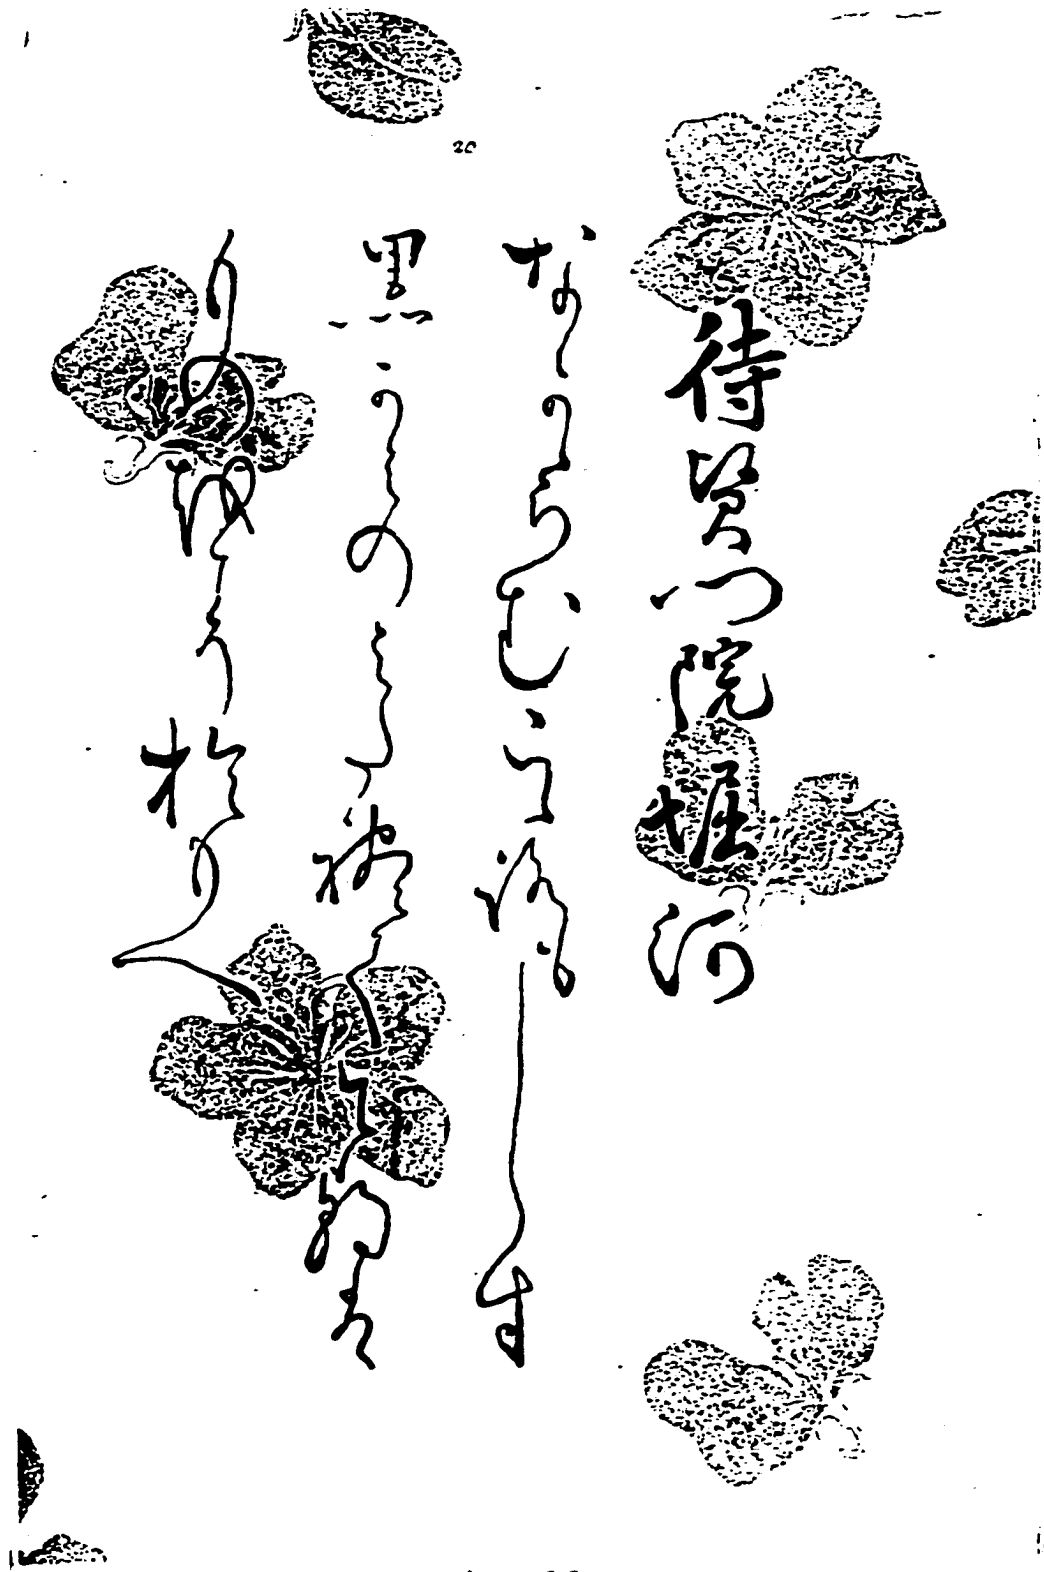 20
待賢門院堀河
なかからむこゝろもしらす
黒かみのみたれてけさは
ものをこそおもへ